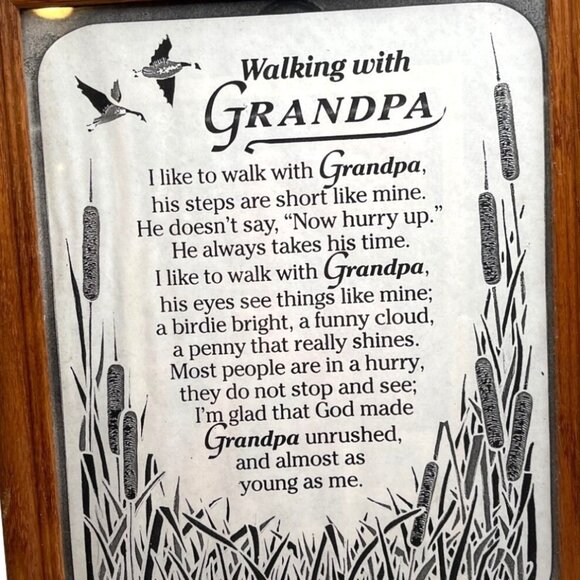 Walking with
GRANDPA
I like to walk with Grandpa,
his steps are short like mine.
He doesn't say, “Now hurry up.”
He always takes his time.
I like to walk with Grandpa,
his eyes see things like mine;
a birdie bright, a funny cloud,
a penny that really shines.
Most people are in a hurry,
they do not stop and see;
I'm glad that God made
Grandpa unrushed,
and almost as
young as me.